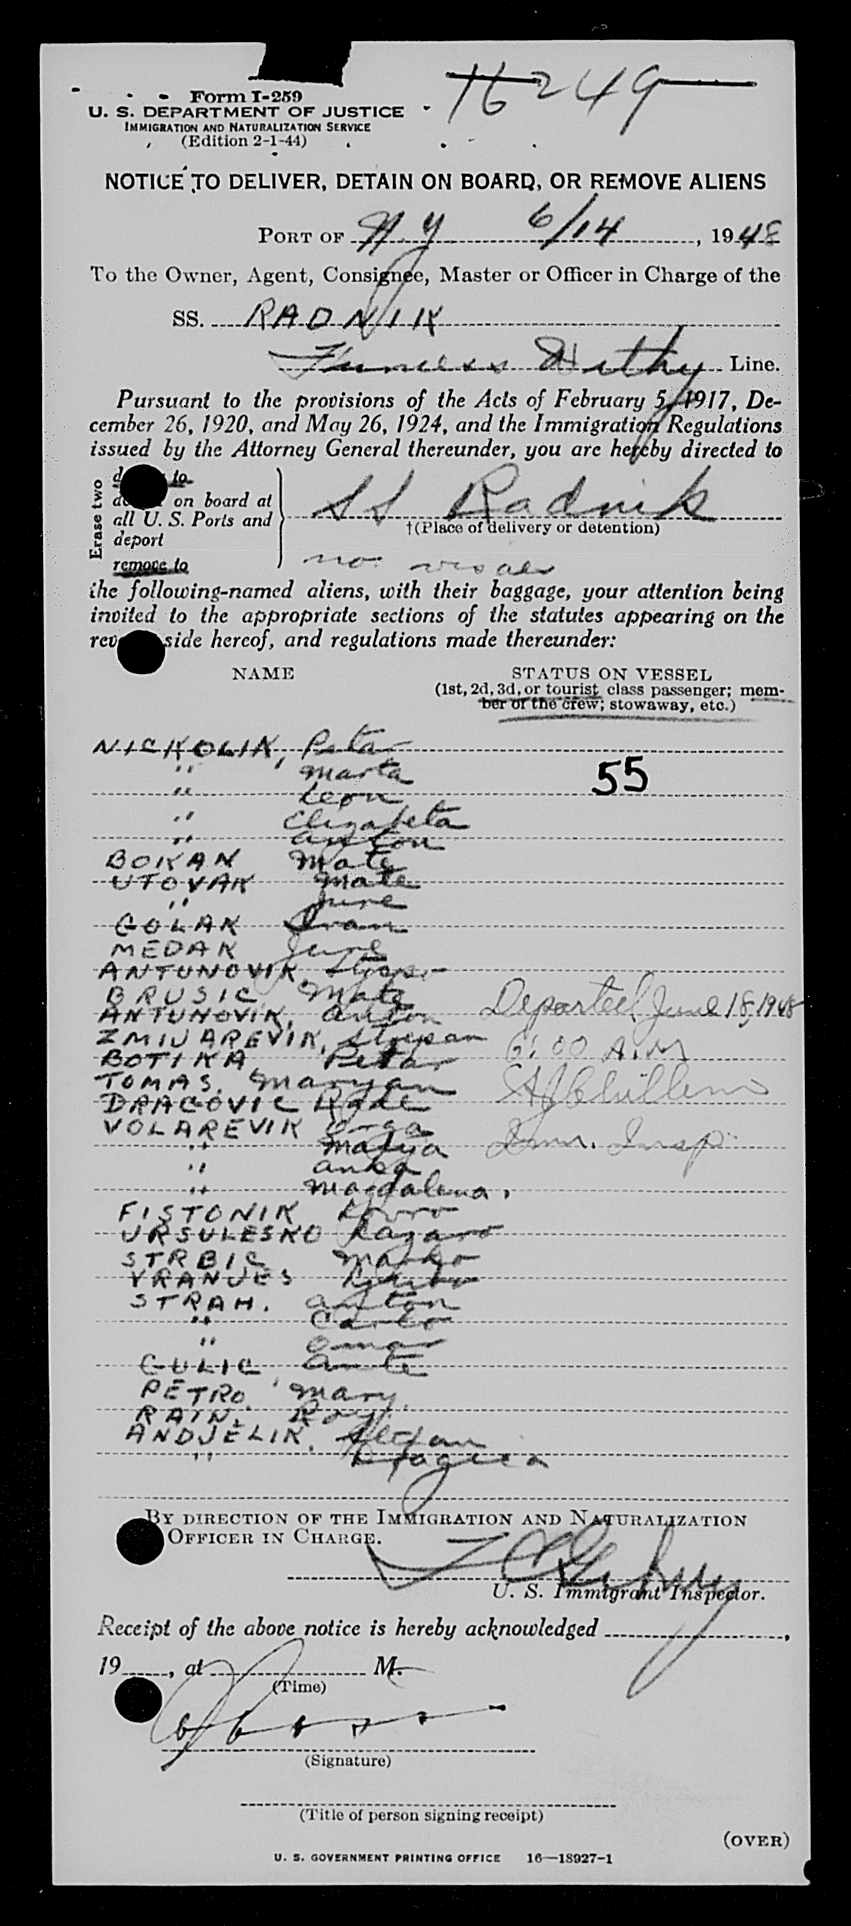 16249
Form I-259
U. S. DEPARTMENT OF JUSTICE
IMMIGRATION AND NATURALIZATION SERVICE
(Edition 2-1-44)
NOTICE TO DELIVER, DETAIN ON BOARD, OR REMOVE ALIENS
PORT OF N.Y. 6/14, 1948
To the Owner, Agent, Consignee, Master or Officer in Charge of the
SS. RADNIK
Furness Withy Line.
Pursuant to the provisions of the Acts of February 5, 1917, De-
cember 26, 1920, and May 26, 1924, and the Immigration Regulations
issued by the Attorney General thereunder, you are hereby directed to
Erase two
to
on board at
all U. S. Ports and
deport
remove to
SS Radnik
†(Place of delivery or detention)
no visas
the following-named aliens, with their baggage, your attention being
invited to the appropriate sections of the statutes appearing on the
side hereof, and regulations made thereunder:
NAME STATUS ON VESSEL
(1st, 2d, 3d, or tourist class passenger; mem-
ber of the crew; stowaway, etc.)
NICKOLIK, Petar
" Marta
55
" Leon
" Elizabeta
" Anton
BOKAN Mate
UTOVAK Mate
" Jure
GOLAK Ivan
MEDAK Jure
ANTUNOVIK
BRUSIC Mate
ANTUNOVIK, Anton Departed June 18, 1948
ZMIJAREVIK, Stjepan
BOTIKA Petar 6:00 A.M
TOMAS. Maryan
DRAGOVIC Rade
VOLAREVIK
" Marya Imm. Insp.
" Anka
" Magdalena.
FISTONIK Lovro
URSULESKO Lazaro
STRBIC Marko
VRANJES
STRAH. Anton
" Carlo
" Omar
CULIC Ante
PETRO. Mary.
RAIN. Roy.
ANDJELIK. Stefan
" Dragica
BY DIRECTION OF THE IMMIGRATION AND NATURALIZATION
OFFICER IN CHARGE.
U. S. Immigrant Inspector.
Receipt of the above notice is hereby acknowledged ,
19 , at M.
(Time)
(Signature)
(Title of person signing receipt)
(OVER)
U. S. GOVERNMENT PRINTING OFFICE 16—18927-1